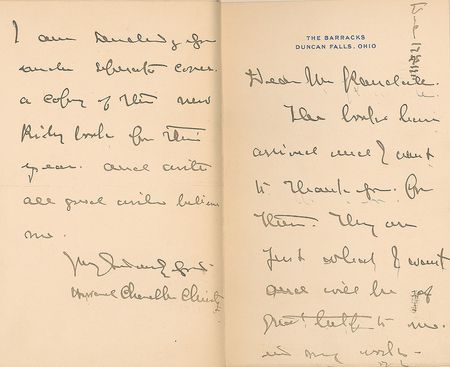 THE BARRACKS
DUNCAN FALLS, OHIO
Dear Mr Randall.
The books have
arrived and I want
to thank you. for
them. They are
just what I want
and will be of
great help to me.
in my work-
I am sending you
under separate cover.
a copy of the new
Riley book for this
year. and with
all good wishes believe
me.
Very sincerely yours
Howard Chandler Christy